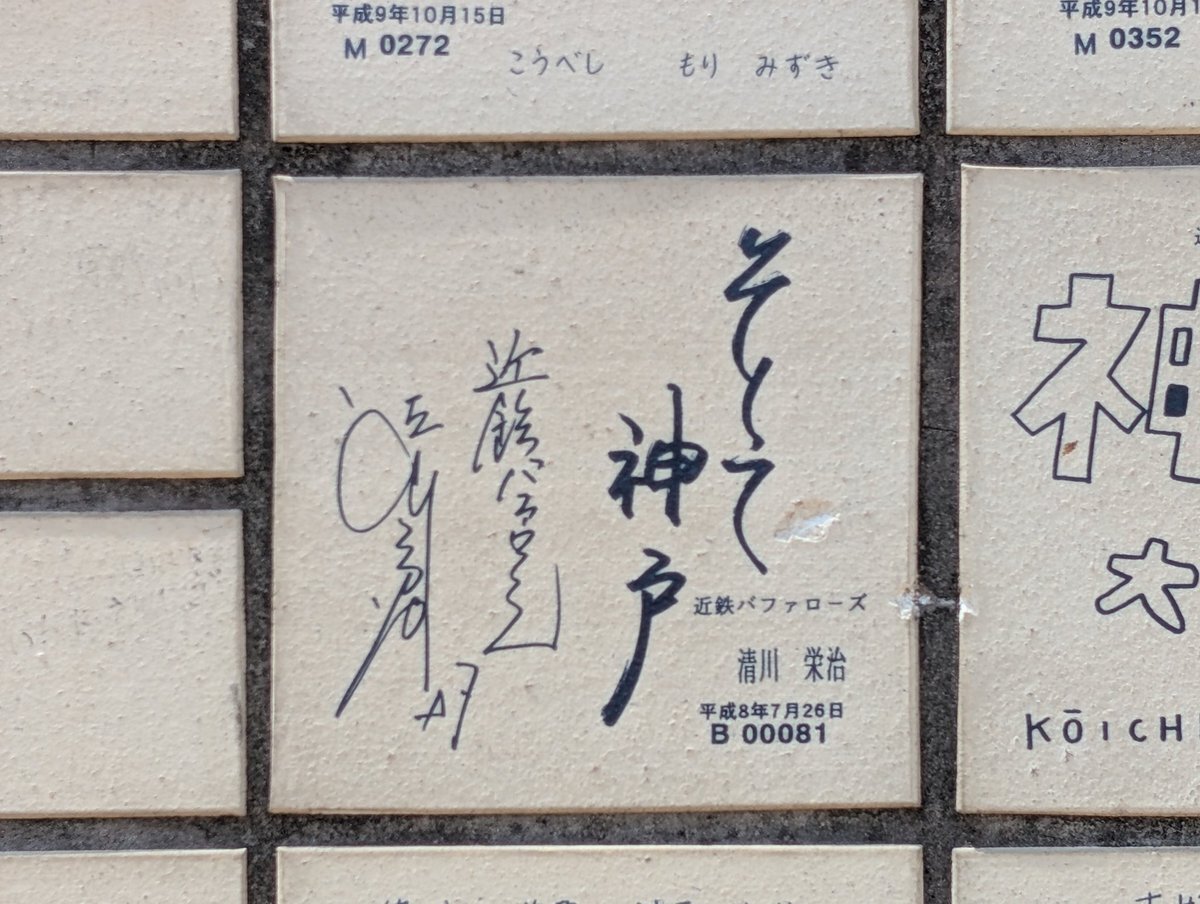 平成9年10月15日
M 0272
こうべし もり みずき
平成9年10月1
M 0352
そして
神戸
近鉄バファローズ
近鉄バファローズ
清川 栄治
平成8年7月26日
B 00081
神
KŌICH